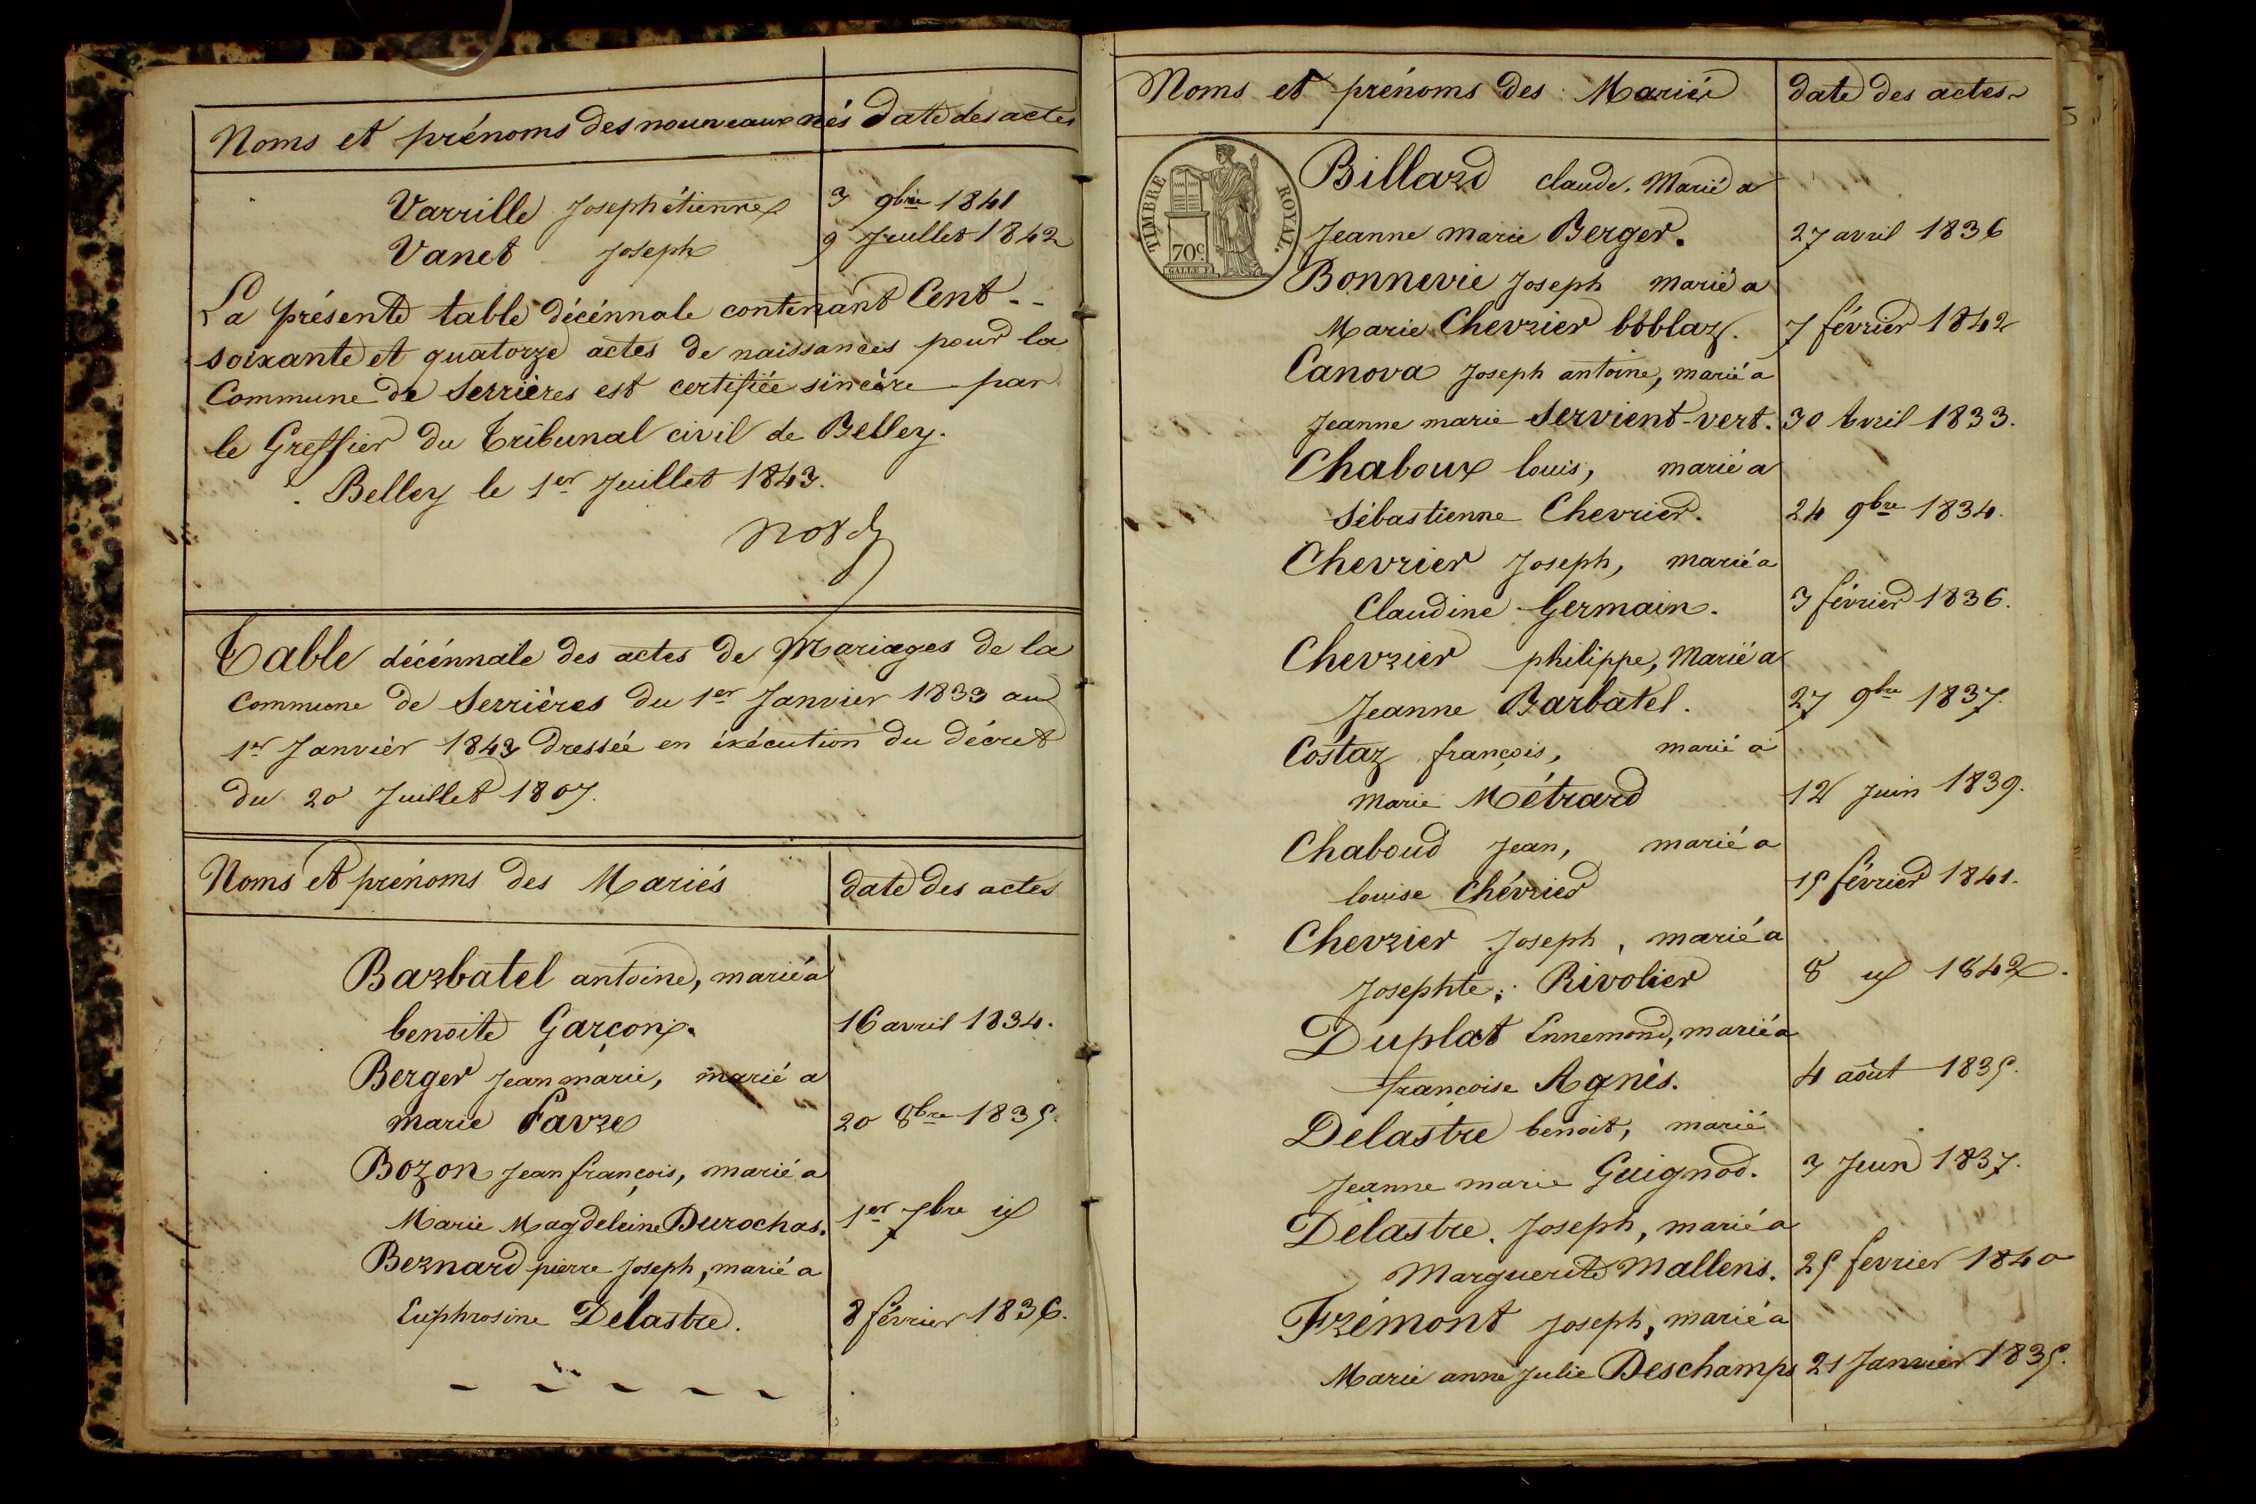 Noms et prénoms des nouveaux nés date des actes
Varrille Joseph étienne 3 9bre 1841
Vanet Joseph 9 Juillet 1842
La présente table décénnale contenant Cent
soixante et quatorze actes de naissances pour la
Commune de Serrières est certifiée sincère par
le Greffier du Tribunal civil de Belley.
Belley le 1er Juillet 1843.
Table décénnale des actes de Mariages de la
commune de Serrières du 1er Janvier 1833 au
1er Janvier 1843 dressée en éxécution du décret
du 20 Juillet 1807.
Noms et prénoms des Mariés date des actes
Barbatel antoine, marié a
benoite Garçon. 16 avril 1834.
Berger Jean marie, marié a
marie Favre 20 8bre 1835.
Bozon Jean françois, marié a
Marie Magdeleine Durochas. 1er 7bre
Bernard pierre Joseph, marié a
Euphrosine Delastre. 8 février 1836.
Noms et prénoms des Mariés date des actes
TIMBRE ROYAL.
70c
Billard claude. Marié a
Jeanne marie Berger. 27 avril 1836
Bonnevie Joseph marié a
Marie Chevrier bóblaz. 7 février 1842
Canova Joseph antoine, marié a
Jeanne marie Servient-vert. 30 Avril 1833.
Chaboux louis, marié a
Sébastienne Chevrier. 24 9bre 1834.
Chevrier Joseph, marié a
Claudine Germain. 3 février 1836.
Chevrier philippe, Marié a
Jeanne Barbatel. 27 9bre 1837.
Costaz françois, marié a
marie Métrard 12 Juin 1839.
Chaboud Jean, marié a
louise Chévrier 15 février 1841.
Chevrier Joseph, marié a
Josephte; Rivolier 8 1842.
Duplat Ennemond, marié a
françoise Agnès. 4 août 1835.
Delastre benoit, marié
Jeanne marie Guignod. 3 Juin 1837.
Delastre. Joseph, marié a
Marguerite Mallens. 25 fevrier 1840
Frémont Joseph, marié a
Marie anne Julie Deschamps 21 Janvier 1835.